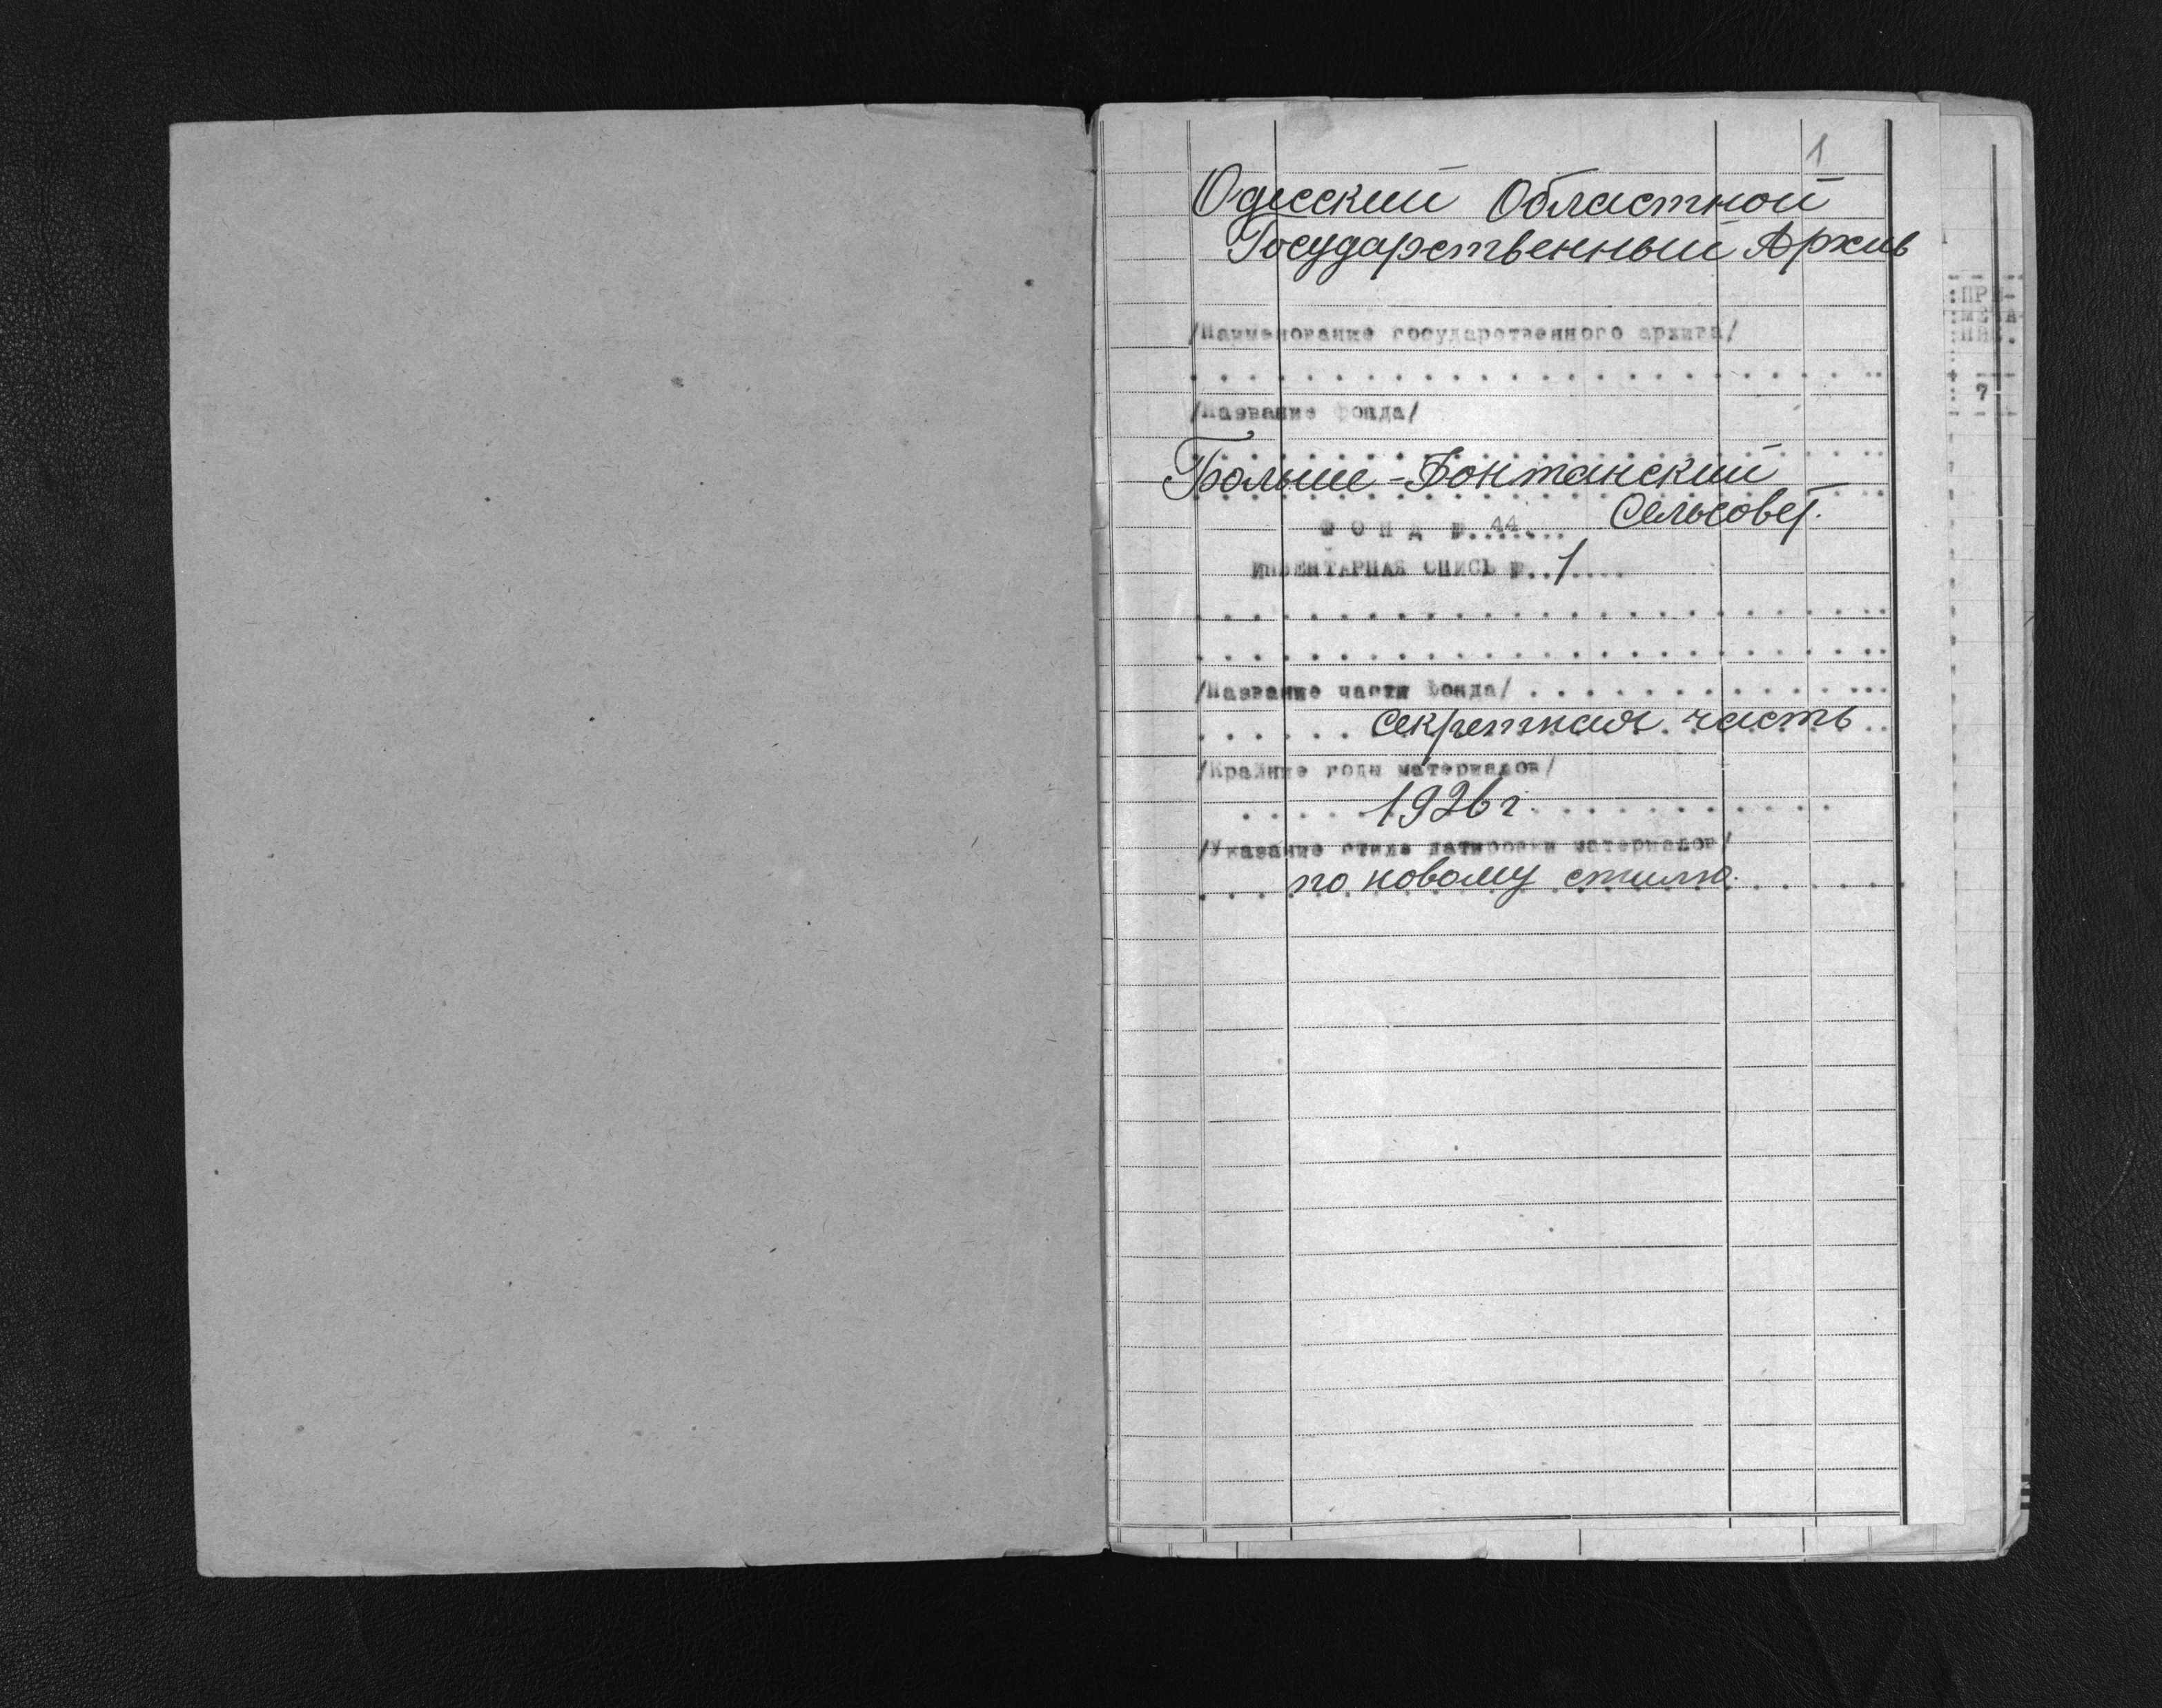 1
Одесский Областной
Государственный Архив
/Наименование государственного архива/
/Название фонда/
Больше-Фонтанский
Сельсовет.
ФОНД №.44....
ИНВЕНТАРНАЯ ОПИСЬ №..1....
/Название части фонда/
секретная часть
/Крайние годы материалов/
1926 г.
/Указание стиля датировки материалов/
по новому стилю.
:ПРИ-
:МЕЧА-
:НИЕ.
: 7